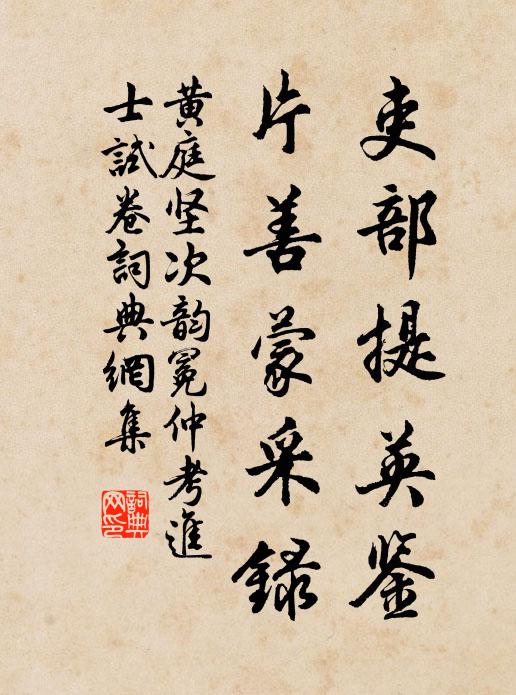 吏部提英鉴
片善蒙采録
黄庭坚次韵冕仲考進
士試卷詞典網集
詞典
网印